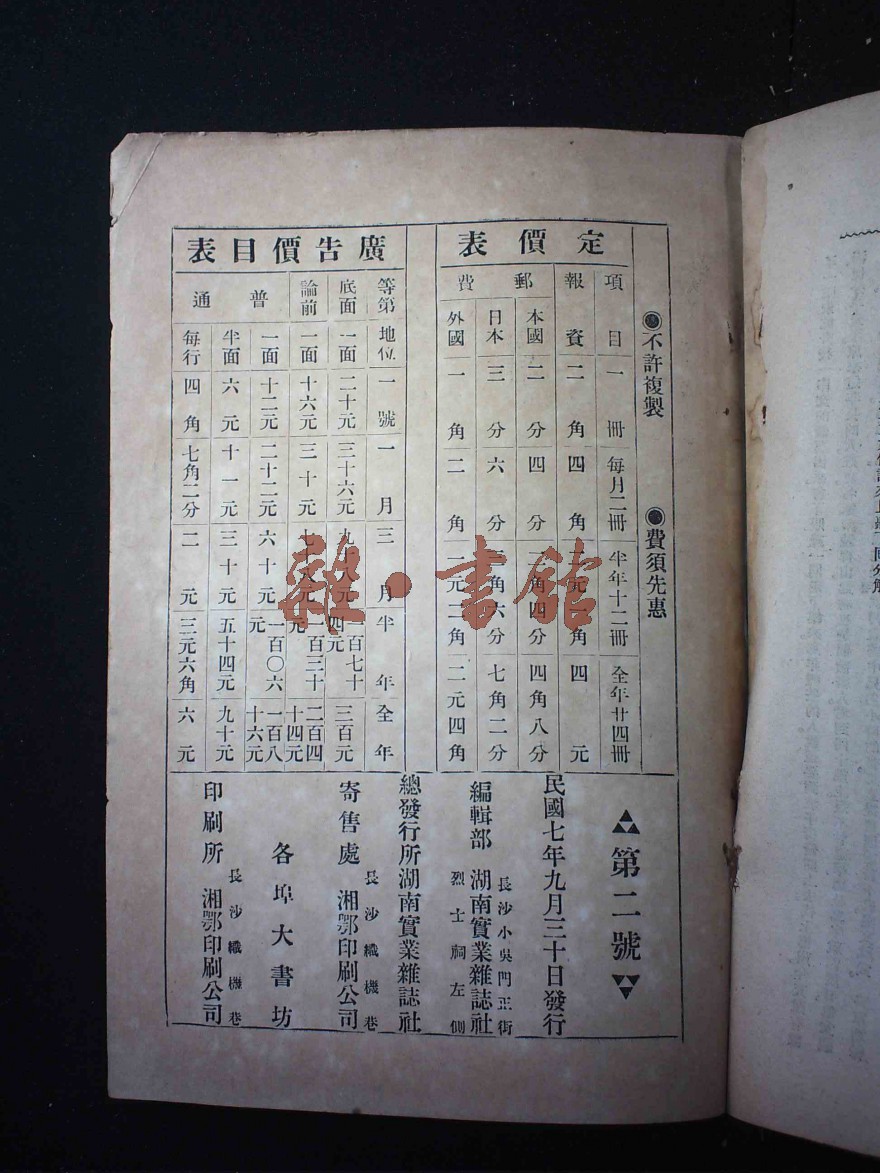 ◉不許複製 ◉費須先惠
定價表
項目 一冊 每月二冊 半年十二冊 全年廿四冊
報資 二角 四角 元一角 四元
郵費
本國 二分 四分 二角四分 四角八分
日本 三分 六分 三角六分 七角二分
外國 一角 二角 一元二角 二元四角
廣告價目表
等第 地位 一號 一月 三月 半年 全年
底面 一面 二十元 三十六元 九十八元 一百七十四元 三百元
論前 一面 十六元 三十元 七十八元 一百三十元 二百四十四元
普通
一面 十二元 二十二元 六十元 一百〇六元 一百八十六元
半面 六元 十一元 三十元 五十四元 九十元
每行 四角 七角二分 二元 三元六角 六元
第二號
民國七年九月三十日發行
長沙小吳門正街
編輯部 湖南實業雜誌社
烈士祠左側
總發行所湖南實業雜誌社
長沙織機巷
寄售處 湘鄂印刷公司
各埠大書坊
長沙織機巷
印刷所 湘鄂印刷公司
雜·書館